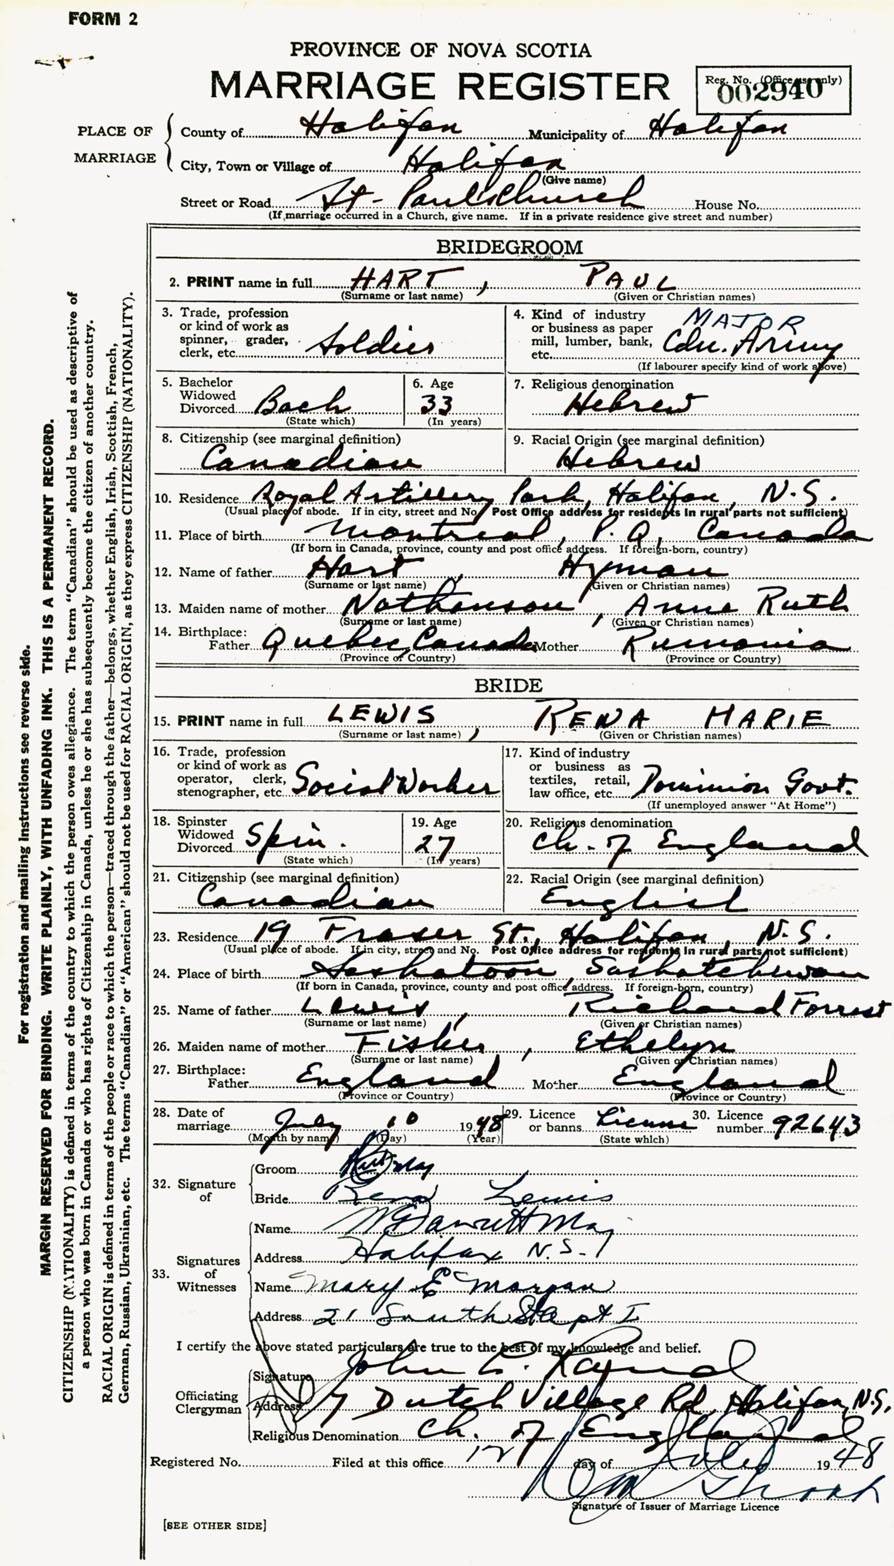 FORM 2
PROVINCE OF NOVA SCOTIA
MARRIAGE REGISTER
Reg. No. (Office use only)
002940
PLACE OF MARRIAGE
County of Halifax Municipality of Halifax
City, Town or Village of Halifax
(Give name)
Street or Road St. Paul's Church House No.
(If marriage occurred in a Church, give name. If in a private residence give street and number)
BRIDEGROOM
2. PRINT name in full HART, PAUL
(Surname or last name) (Given or Christian names)
3. Trade, profession or kind of work as spinner, grader, clerk, etc. Soldier
4. Kind of industry or business as paper mill, lumber, bank, etc. MAJOR Cdn. Army
(If labourer specify kind of work above)
5. Bachelor Widowed Divorced Bach
(State which)
6. Age 33
(In years)
7. Religious denomination
Hebrew
8. Citizenship (see marginal definition)
Canadian
9. Racial Origin (see marginal definition)
Hebrew
10. Residence Royal Artillery Park, Halifax, N.S.
(Usual place of abode. If in city, street and No. Post Office address for residents in rural parts not sufficient)
11. Place of birth Montreal, P.Q., Canada
(If born in Canada, province, county and post office address. If foreign-born, country)
12. Name of father Hart, Hyman
(Surname or last name) (Given or Christian names)
13. Maiden name of mother Nathanson, Anne Ruth
(Surname or last name) (Given or Christian names)
14. Birthplace: Father Quebec, Canada Mother Rumania
(Province or Country) (Province or Country)
BRIDE
15. PRINT name in full LEWIS, RENA MARIE
(Surname or last name) (Given or Christian names)
16. Trade, profession or kind of work as operator, clerk, stenographer, etc. Social Worker
17. Kind of industry or business as textiles, retail, law office, etc. Dominion Govt.
(If unemployed answer "At Home")
18. Spinster Widowed Divorced Spin.
(State which)
19. Age 27
(In years)
20. Religious denomination
Ch. of England
21. Citizenship (see marginal definition)
Canadian
22. Racial Origin (see marginal definition)
English
23. Residence 19 Fraser St., Halifax, N.S.
(Usual place of abode. If in city, street and No. Post Office address for residents in rural parts not sufficient)
24. Place of birth Saskatoon, Saskatchewan
(If born in Canada, province, county and post office address. If foreign-born, country)
25. Name of father Lewis, Richard Forrest
(Surname or last name) (Given or Christian names)
26. Maiden name of mother Fisher, Ethelyn
(Surname or last name) (Given or Christian names)
27. Birthplace: Father England Mother England
(Province or Country) (Province or Country)
28. Date of marriage July 10 1948
(Month by name) (Day) (Year)
29. Licence or banns License
(State which)
30. Licence number 92643
32. Signature of
Groom Maj
Bride Rena Lewis
33. Signatures of Witnesses
Name Maj
Address Halifax N.S.
Name Mary E Morgan
Address 21 South St Apt I
I certify the above stated particulars are true to the best of my knowledge and belief.
Officiating Clergyman
Signature John
Address 7 Dutch Village Rd, Halifax, N.S.
Religious Denomination Ch. of England
Registered No. Filed at this office 12 day of July 1948
Signature of Issuer of Marriage Licence
[SEE OTHER SIDE]
For registration and mailing instructions see reverse side.
MARGIN RESERVED FOR BINDING. WRITE PLAINLY, WITH UNFADING INK. THIS IS A PERMANENT RECORD.
CITIZENSHIP (NATIONALITY) is defined in terms of the country to which the person owes allegiance. The term "Canadian" should be used as descriptive of
a person who was born in Canada or who has rights of Citizenship in Canada, unless he or she has subsequently become the citizen of another country.
RACIAL ORIGIN is defined in terms of the people or race to which the person—traced through the father—belongs, whether English, Irish, Scottish, French,
German, Russian, Ukrainian, etc. The terms "Canadian" or "American" should not be used for RACIAL ORIGIN, as they express CITIZENSHIP (NATIONALITY).